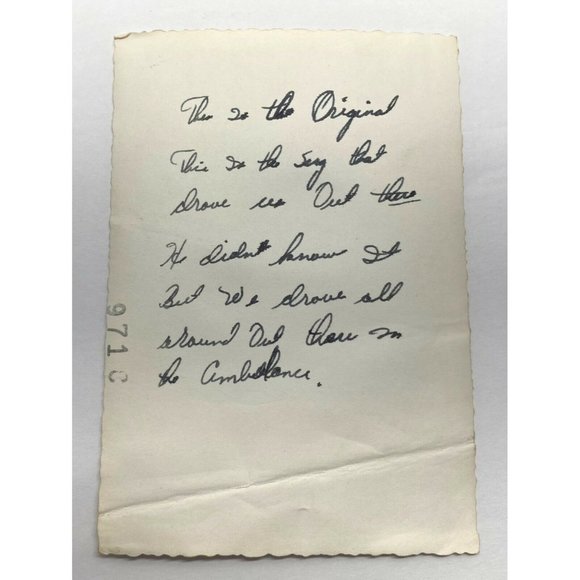 This is the Original
This is the Serg that
drove us Out there
He didn't know It
But We drove all
around Out there in
the Ambulance.
971C